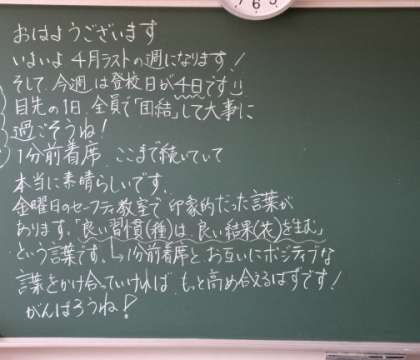 おはようございます
いよいよ 4月ラストの週になります!
そして、今週は登校日が4日です!!
目先の1日、全員で「団結」して大事に
過ごそうね!
1分前着席、ここまで続いていて
本当に素晴らしいです。
金曜日のセーフティ教室で印象的だった言葉が
あります。「良い習慣(種)は、良い結果(花)を生む」
という言葉です。↳1分前着席とお互いにポジティブな
言葉をかけ合っていければ、もっと高め合えるはずです!
がんばろうね!